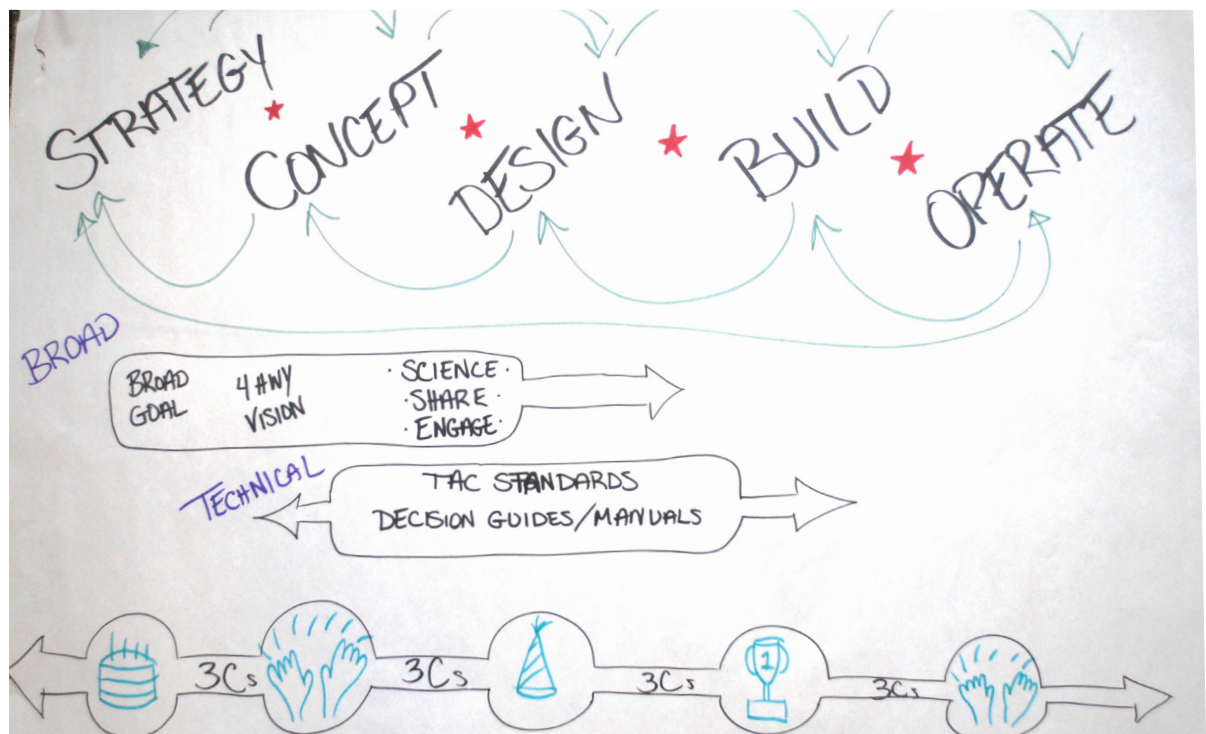 STRATEGY
CONCEPT
DESIGN
BUILD
OPERATE
BROAD
BROAD
GOAL
4 HWY
VISION
· SCIENCE ·
· SHARE ·
· ENGAGE ·
TECHNICAL
TAC STANDARDS
DECISION GUIDES/MANUALS
3Cs 3Cs 3Cs 3Cs
1